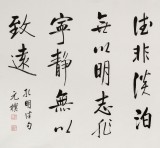 非淡泊
無以明志非
寧靜無以
致遠
孔明